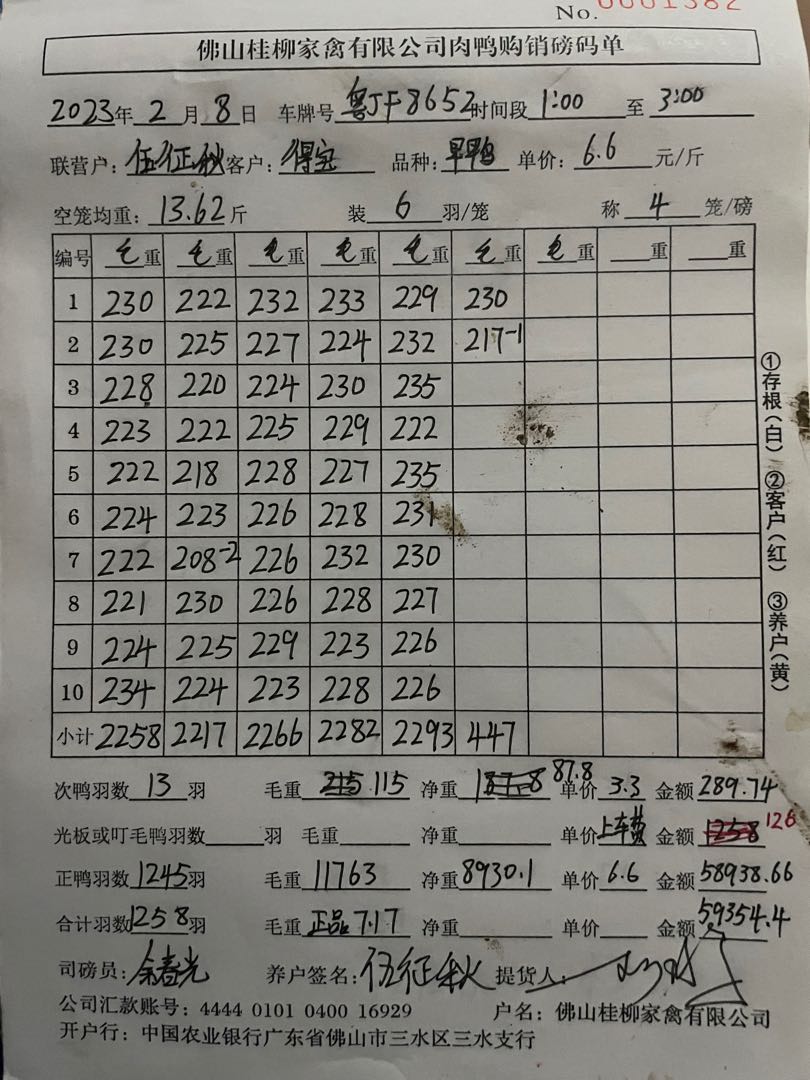 No. 0001382
佛山桂柳家禽有限公司肉鸭购销磅码单
2023年 2 月 8 日 车牌号 粤JF8652 时间段 1:00 至 3:00
联营户: 伍征秋 客户: 得宝 品种: 旱鸭 单价: 6.6 元/斤
空笼均重: 13.62 斤 装 6 羽/笼 称 4 笼/磅
编号 毛重 毛重 毛重 毛重 毛重 毛重 毛重 重 重
1 230 222 232 233 229 230
2 230 225 227 224 232 217-1
3 228 220 224 230 235
4 223 222 225 229 222
5 222 218 228 227 235
6 224 223 226 228 231
7 222 208-2 226 232 230
8 221 230 226 228 227
9 224 225 229 223 226
10 234 224 223 228 226
小计 2258 2217 2266 2282 2293 447
次鸭羽数 13 羽 毛重 115 净重 87.8 单价 3.3 金额 289.74
光板或叮毛鸭羽数 羽 毛重 净重 单价 上车费 金额 1258 126
正鸭羽数 1245 羽 毛重 11763 净重 8930.1 单价 6.6 金额 58938.66
合计羽数 1258 羽 毛重 正品7.17 净重 单价 金额 59354.4
司磅员: 余春光 养户签名: 伍征秋 提货人:
公司汇款账号: 4444 0101 0400 16929 户名: 佛山桂柳家禽有限公司
开户行: 中国农业银行广东省佛山市三水区三水支行
①存根(白) ②客户(红) ③养户(黄)